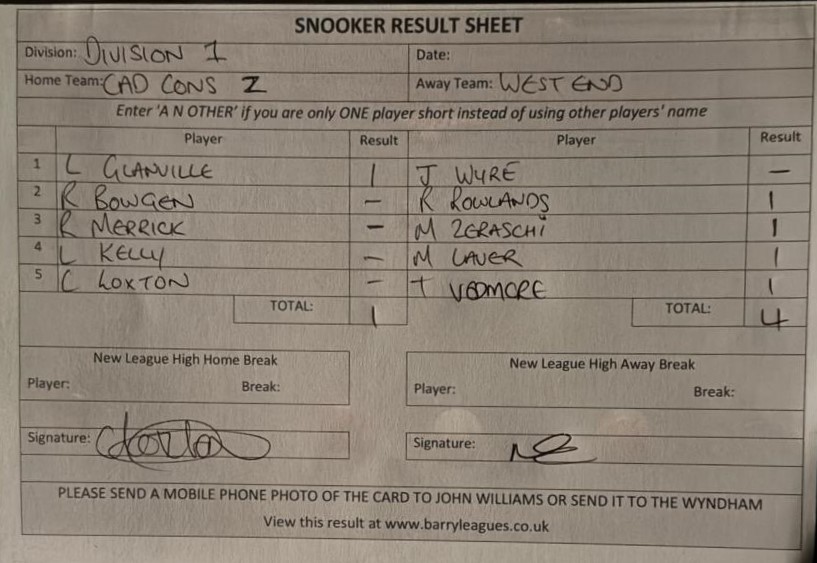 SNOOKER RESULT SHEET
Division: DIVISION 1 Date:
Home Team: CAD CONS 2 Away Team: WEST END
Enter 'A N OTHER' if you are only ONE player short instead of using other players' name
Player Result Player Result
1 L GLANVILLE 1 J WYRE –
2 R BOWGEN – R ROWLANDS 1
3 R MERRICK – M ZERASCHI 1
4 L KELLY – M LAVER 1
5 C LOXTON – T VEDMORE 1
TOTAL: 1 TOTAL: 4
New League High Home Break New League High Away Break
Player: Break: Player: Break:
Signature: Signature:
PLEASE SEND A MOBILE PHONE PHOTO OF THE CARD TO JOHN WILLIAMS OR SEND IT TO THE WYNDHAM
View this result at www.barryleagues.co.uk